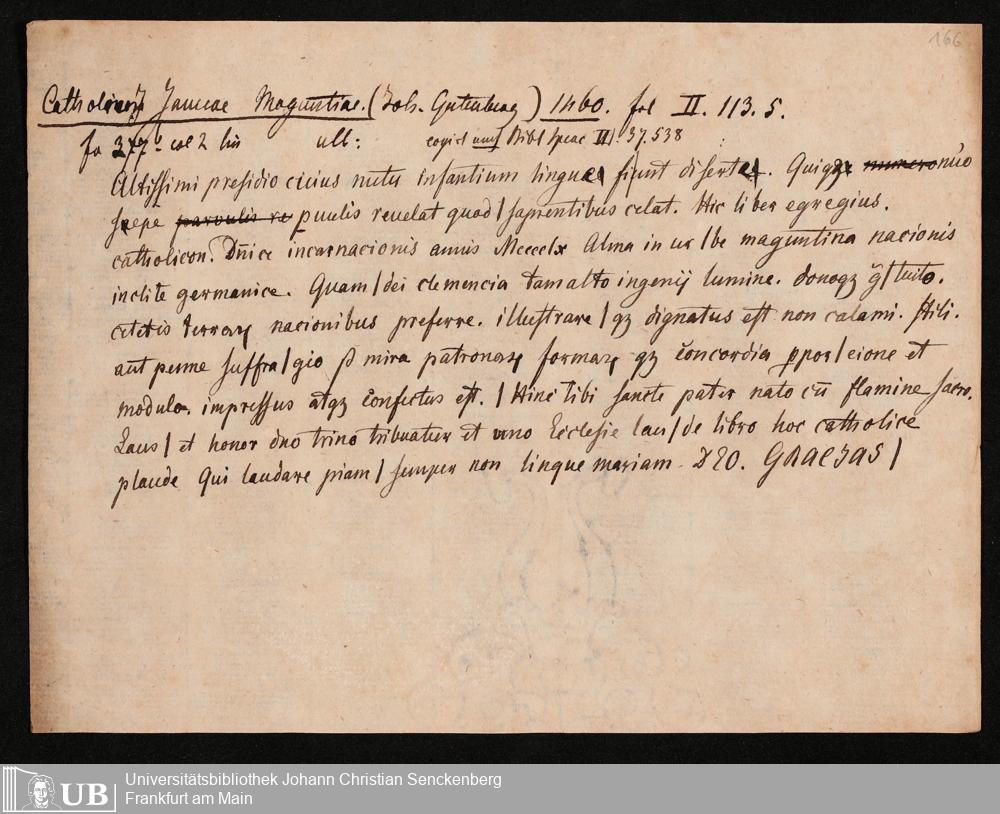 166
Catholicon Januae Maguntiae. (Joh. Gutenberg) 1460. fol II. 113. 5.
fo 377.b col 2 lin ult: Bibl Spenc III. 37. 538
Altissimi presidio cuius nutu infantium lingue fiunt diserte. Quiqꝫ numero nūo
sepe parvulis re puulis reuelat quod | sapientibus celat. Hic liber egregius.
catholicon. Dn̄ice incarnacionis annis Mcccclx Alma in ur | be maguntina nacionis
inclite germanice. Quam | dei clemencia tam alto ingenij lumine. donoqꝫ g̃ | tuito.
ceteris terraꝝ nacionibus preferre. illustrare | qꝫ dignatus est non calami. stili.
aut penne suffra | gio ꝭ mira patronaꝝ formaꝝ qꝫ c̄oncordia ꝓpor | cione et
modulo. impressus atqꝫ c̄onfectus est. | Hinc tibi sancte pater nato cū flamine sacro.
Laus | et honor dno trino tribuatur et uno Ecclesie lau | de libro hoc catholice
plaude Qui laudare piam | semper non lingue mariam. DEO. GRACIAS |
UB
Universitätsbibliothek Johann Christian Senckenberg
Frankfurt am Main